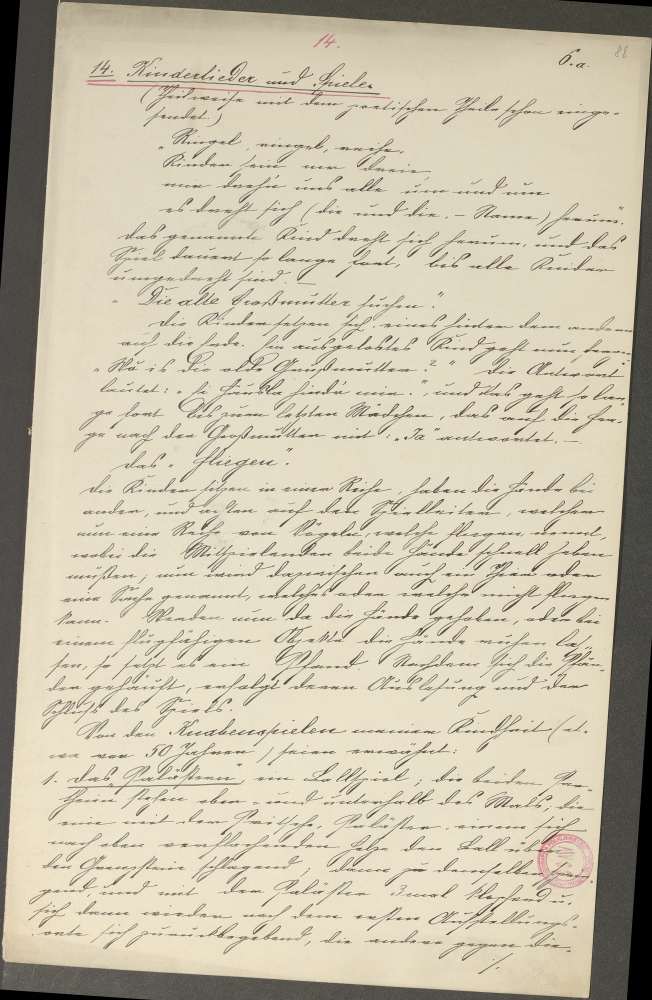 14.
6.a.
88
14. Kinderlieder und Spiele.
(Theilweise mit dem poetischen Theile schon einge-
sendet.)
„Ringel, ringel, reihe,
Kinder sein mer dreie,
mer dreh'n uns alle um und um
es dreht sich (die und die. – Name) herum".
Das genannte Kind dreht sich herum, und das
Spiel dauert so lange fort, bis alle Kinder
umgedreht sind. –
„Die alte Großmutter suchen".
Die Kinder setzen sich eines hinter dem andern
auf die Erde. Ein ausgelostes Kind geht nun herum:
„Wo is die alte Großmutter?" Die Antwort
lautet: „hinter mir.", und das geht so lan-
ge fort bis zum letzten Mädchen, das auf die Fra-
ge nach der Großmutter mit: „Ja" antwortet. –
Das „Fliegen".
Die Kinder sitzen in einer Reihe, haben die Hände bei
ander, und achten auf den Spielleiter, welcher
nun eine Reihe von Vögeln, welche fliegen nennt,
wobei die Mitspielenden beide Hände schnell heben
müßen; nun wird dazwischen auch ein Thier oder
eine Sache genannt, welches oder welche nicht fliegen
kann. Werden nun da die Hände gehoben, oder bei
einem flugfähigen Objekte die Hände ruhen las-
sen, so setzt es ein Pfand. Nachdem sich die Pfän-
der gehäuft, erfolgt deren Auslosung und der
Schluß des Spiels.
Von den Knabenspielen meiner Kindheit (et-
wa vor 50 Jahren) seien erwähnt:
1. Das „Palöstern", ein Ballspiel; die beiden Par-
theien stehen ober- und unterhalb des Mals; die
eine mit der Pritsche, Palöster, einem sich
nach oben verflachenden Holze den Ball über
den Grenzstein schlagend, dann zu demselben sprin-
gend und mit der Palöster 3mal klopfend u.
sich dann wieder nach dem ersten Aufstellungs-
orte sich zurückbegebend, die andere gegen die-
./.